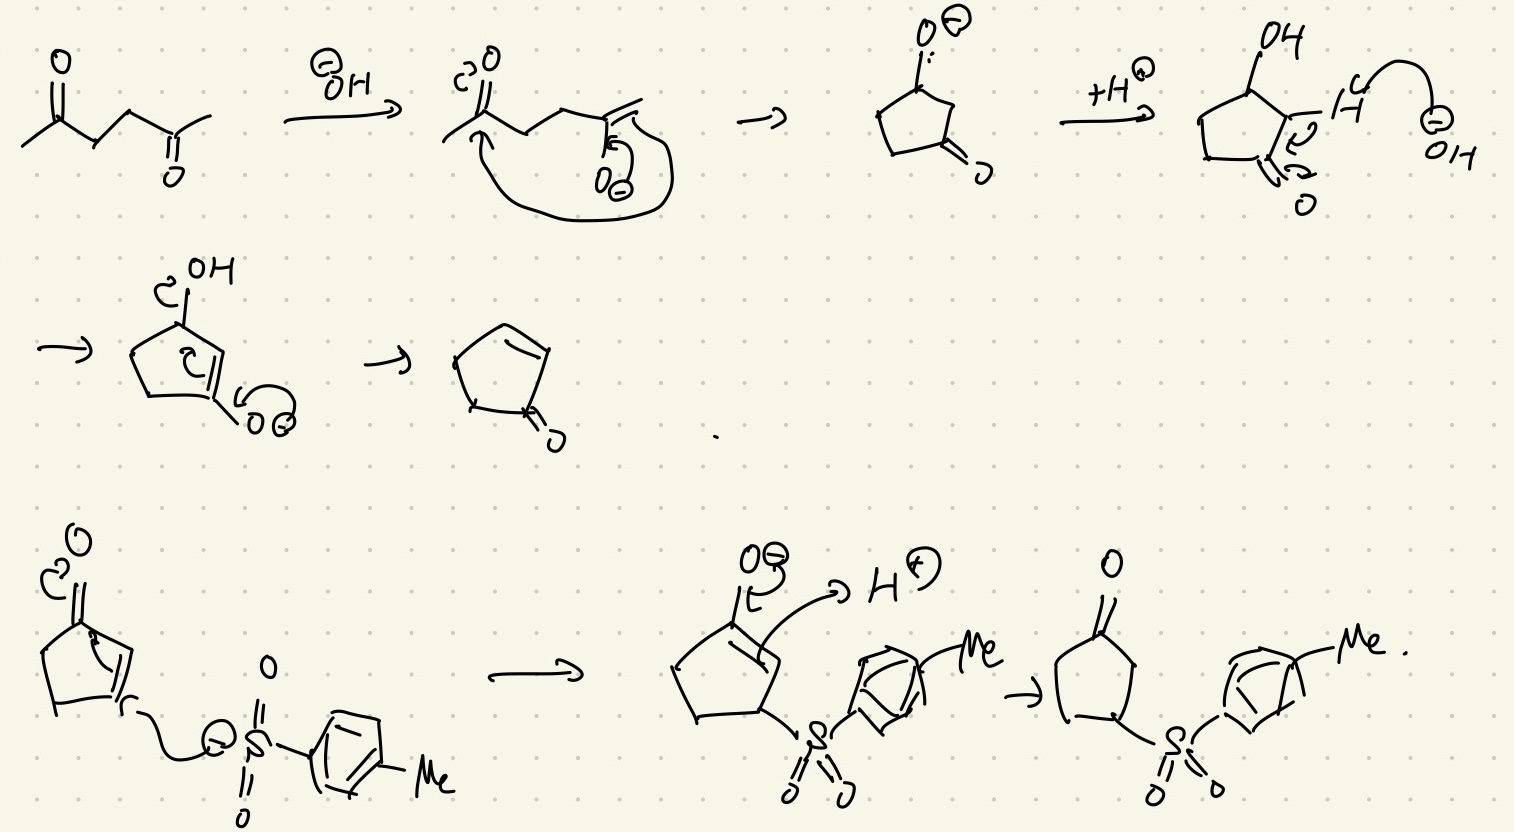 O
O
⊖OH
O
O⊖
O⊖
O
+H⊕
OH
H
O
⊖OH
OH
O⊖
O
O
O
⊖S
O
Me
O⊖
H⊕
Me
S
O O
O
Me
S
O O